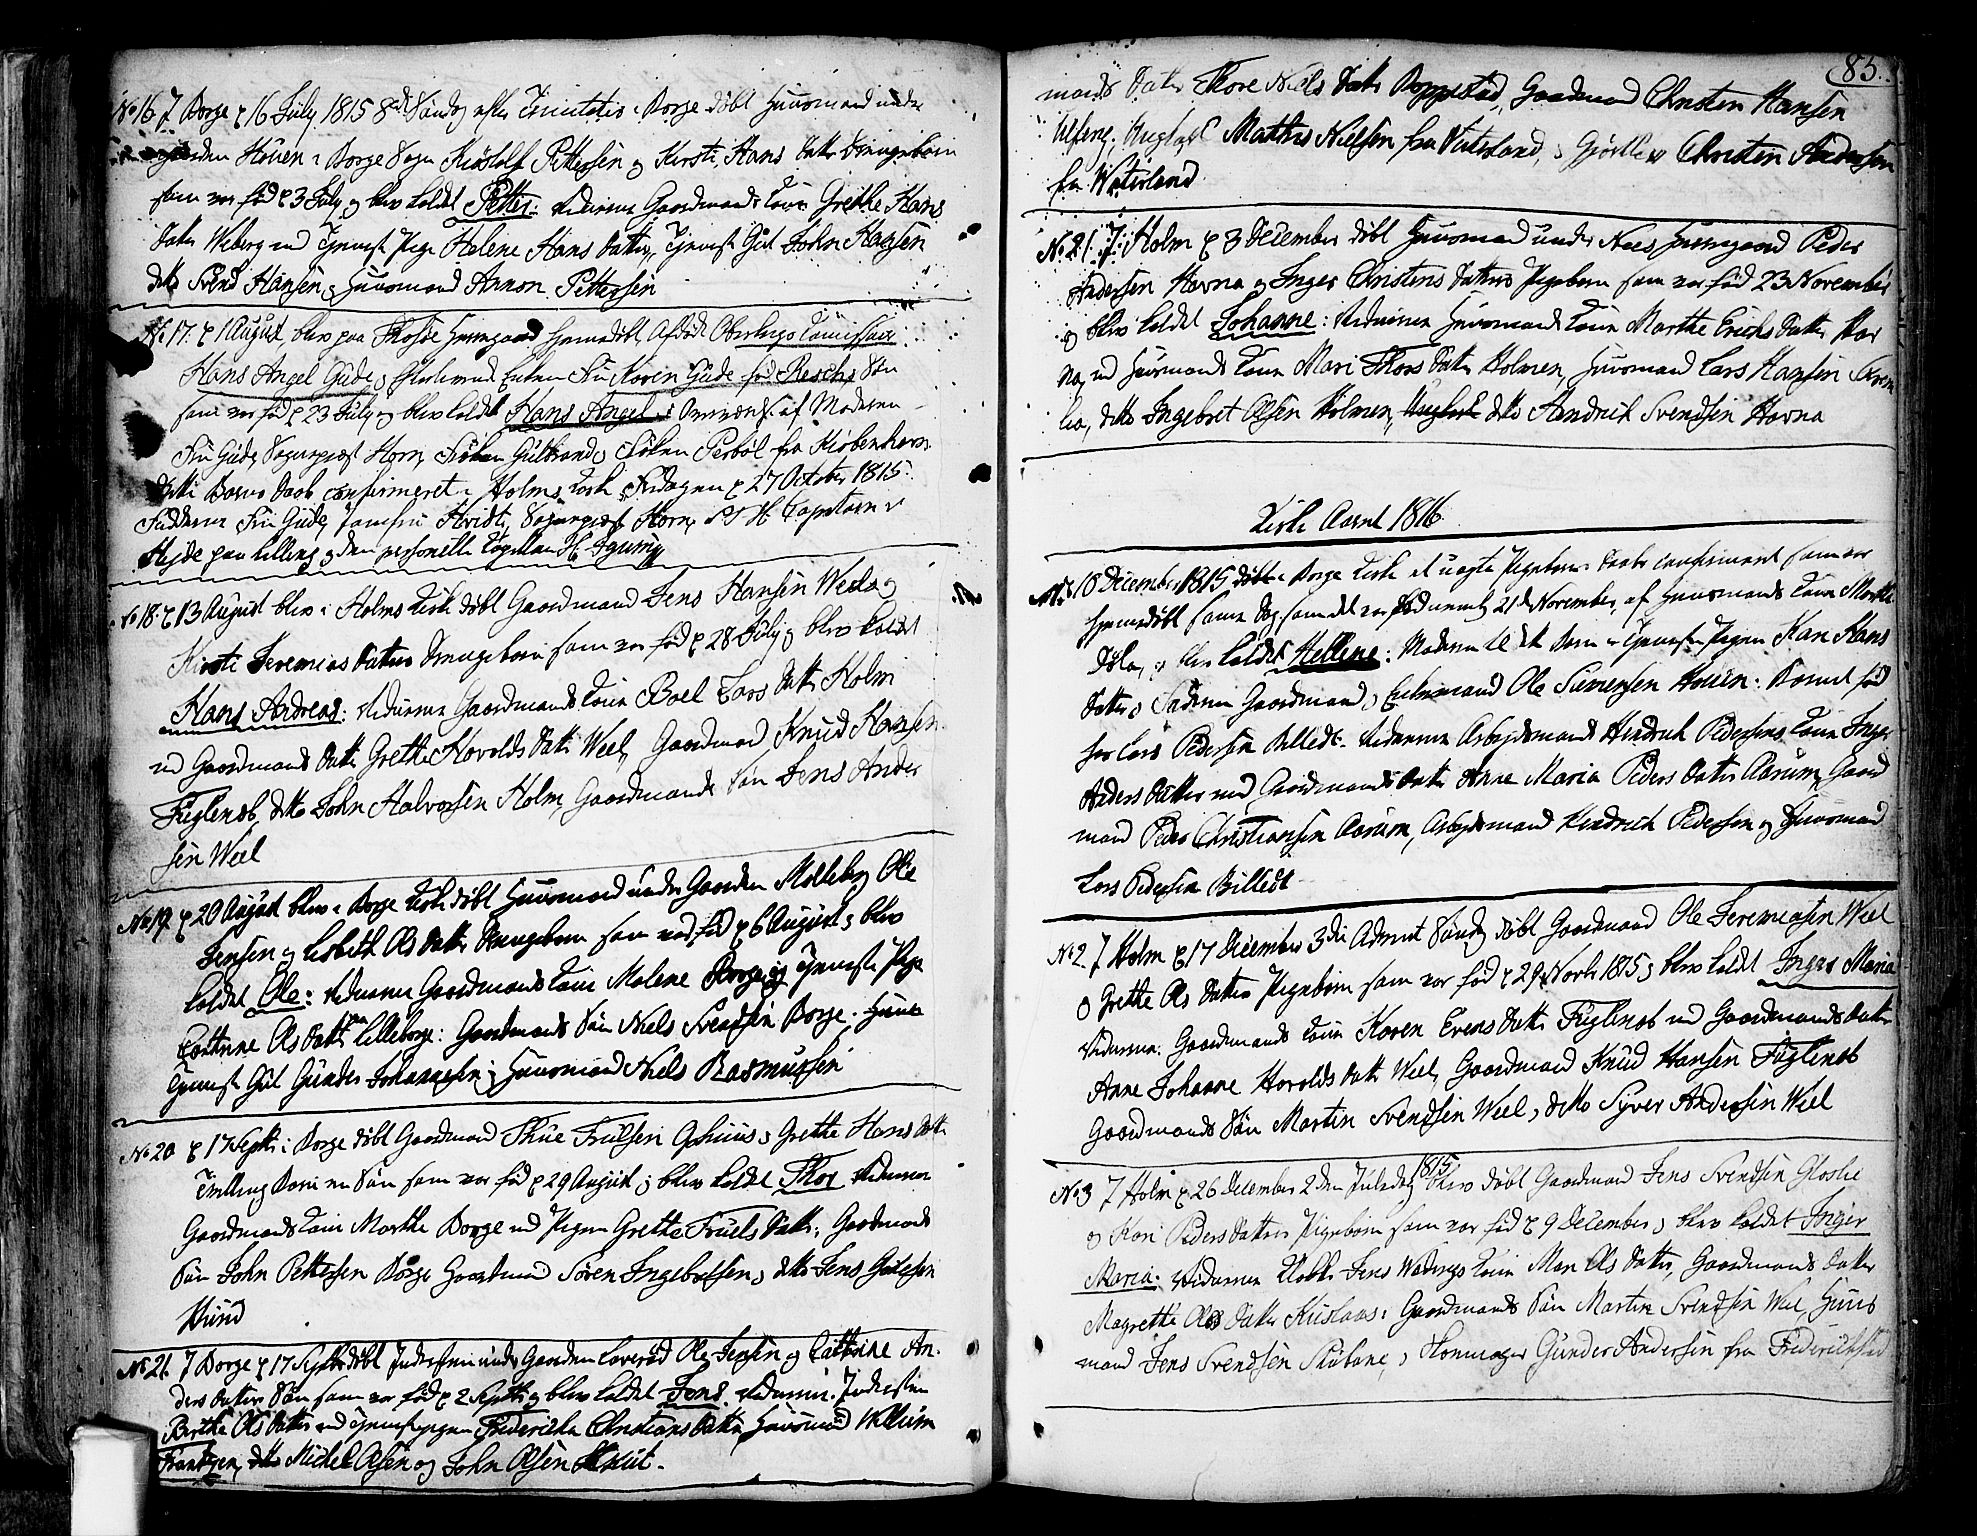 No 16. J Borge d 16 July 1815 8de Søndag efter Trinitatis i Borge døbt Huusmand under
gaarden Houen i Borge Sogn Kiøstolf Pettersen og Kirsti Hans datters drengebørn
som var fød d 3 July og blev kaldet Petter: vidnerne Gaardmands Kone Grethe Hans
datter Weberg med tjeneste Pige Helene Hans datter, tjeneste Gut John Hansen
ditto Svend Hansen og Huusmand Arnon Pettersen
No 17. d 1 August blev paa Thosøe Herregaard hjemmedøbt Afdøde
Hans Angel Gude og efterlevende Enke Fru Karen Gude fød Resch Søn
som var fød d 23 July og blev kaldet Hans Angel: af Moderen
Fru Gude, Sogneprest Horn, Frøken Guldbrand og Frøken fra Kiøbenhavn
dette Barns daab confirmeret i Holms Kirke Fredagen d 27 October 1815.
Fadderne Fru Gude, Jomfru Hvidt, Sogneprest Horn,
Hejde paa Killing og den personelle Capellan H.
No 18. d 13 August blev i Holms Kirke døbt Gaardmand Jens Hansen Weel og
Kirsti Jeremias datters drengebørn som var fød d 28 July og blev kaldet
Hans Andreas: vidnerne Gaardmands Kone Boel Lars datter Holm
med Gaardmands datter Grethe Haralds datter Weel, Gaardmand Knud Hansen
Fuglevob, ditto John Halvorsen Holm, Gaardmands Søn Jens Ander
sen Weel
No 19. d 20 August blev i Borge Kirke døbt Huusmand under Gaarden Moleberg Ole
Jensen og Lisbeth Ols datters drengebørn som var fød d 6 August og blev
kaldet Ole: vidnerne Gaardmands Kone Malene Borge og tjeneste Pige
Cathrine Ols datter Lilleborge: Gaardmands Søn Niels Svendsen Borge.
tjeneste Gut Gunder Johannesen og Huusmand Niels Rasmussen
No 20 d 17 Septbr: i Borge døbt Gaardmand Thue Truelsen og Grethe Hans datters
Tvilling Barn en Søn som var fød d 29 August og blev kaldet Thor vidnerne
Gaardmands Kone Marthe Borge med Pigen Grethe Truels datter, Gaardmands
Søn John Pettersen Borge Gaardmand Søren Ingebretsen, ditto Jens
Hund
No 21. J Borge d 17 Septbr døbt Inderste under Gaarden Loverød Ole Jensen og Cathrine An-
ders datters Søn som var fød d 2 Septbr og blev kaldet Jens. vidnerne: Inderste
Berthe Ols datter med tjenestepigen Fridericha Christians datter, Huusmand Willum
Frantzen, ditto Michel Olsen og John Olsen
85.
mands datter Thore Niels datter Roppestad, Gaardmand Christen Hansen
Mathis Nielsen fra Vaterland, og Christen Andersen
fra Waterland
No. 21. J. Holm d 3 December døbt Huusmand under Nees Herregaard Peder
Andersen Hovna og Inger Christens datters Pigebørn som var fød 23 November
og blev kaldet Johanne: vidnerne Huusmands Kone Marthe Erichs datter Hov
na, med Huusmands Kone Mari Thors datter Holmen, Huusmand Lars Hansen
lia, ditto Ingebret Olsen Holmen, ditto Andrich Svendsen Hovna
Kirke Aaret 1816.
10 December 1815 døbt i Borge Kirke et uægte Pigebarns daab confirmeret som var
hjemmedøbt samme dag som det var fød nemlig 21de November, af Huusmands Kone Marthe
og blev kaldet Hellene: Moderen til dette Barn er tjenestePigen Kari Hans
datter og Faderen Gaardmand og Enkemand Ole Sørensen Houen: Barnet fød
hos Lars Pedersen Billedt. vidnerne Arbejdsmand Hindrich Pedersens Kone Inger
Anders datter med Gaardmands datter Anne Maria Peders datter Aarum, Gaard
mand Peder Christiansen Aarum, Arbejdsmand Hindrich Pedersen og Huusmand
Lars Pedersen Billedt
No 2. J Holm d 17 December 3die Advent Søndag døbt Gaardmand Ole Jeremiasen Weel
og Grethe Ols datters Pigebørn som var fød d 29 Novbr 1815 og blev kaldet Inger Maria
vidnerne: Gaardmands Kone Karen Evens datter Fuglevob med Gaardmands datter
Anne Johanne Haralds datter Weel, Gaardmand Knud Hansen Fuglevob
Gaardmands Søn Martin Svendsen Weel, ditto Syver Andersen Weel
No 3 J Holm d 26 December 2den Juledag 1815 blev døbt Gaardmand Jens Svendsen Gloslie
og Kari Peders datters Pigebørn som var fød d 9 December og blev kaldet Inger
Maria: vidnerne Klokker Jens Kone Mari Ols datter, Gaardmands datter
Magrethe Ols datter Gaardmands Søn Martin Svendsen Weel, Huus
mand Jens Svendsen og Gunder Andersen fra Friderichstad